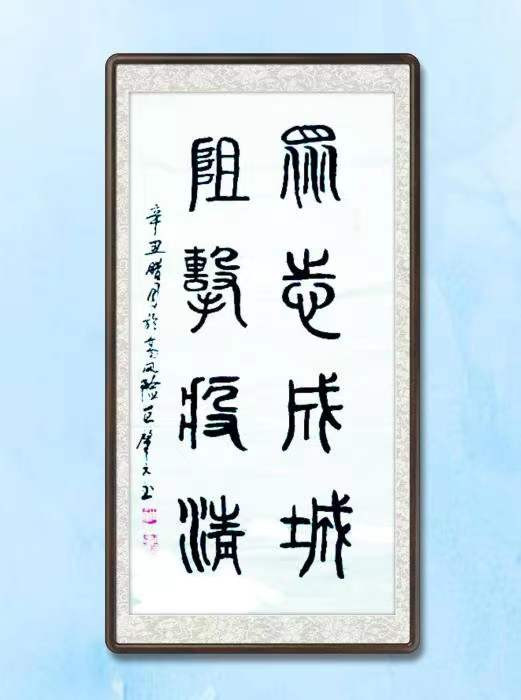 眾志成城
阻擊疫情
辛丑腊月於高风险区肇文书